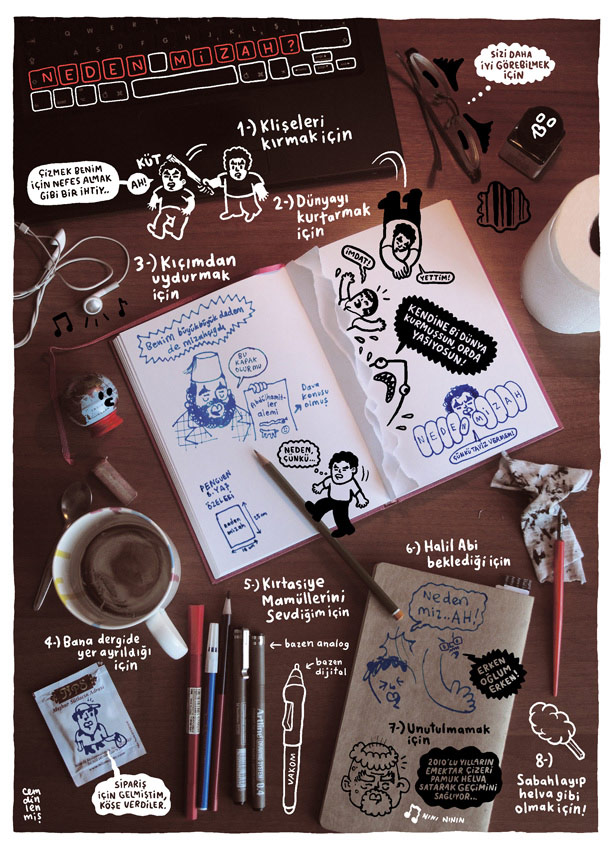 NEDEN MİZAH?
SİZİ DAHA
İYİ GÖREBİLMEK
İÇİN
1-) Klişeleri
kırmak için
KÜT
ÇİZMEK BENİM
İÇİN NEFES ALMAK
GİBİ BİR İHTİY..
AH!
2-) Dünyayı
kurtarmak
için
3-) Kıçımdan
uydurmak
için
İMDAT!
YETTİM!
KENDİNE Bİ DÜNYA
KURMUSSUN, ORDA
YAŞIYOSUN!
Benim büyükbüyük dedem
de mizahçıydı
BU
KAPAK
OLUR MU
alemi
Dava
konusu
olmuş
NEDEN MİZAH
ÇÜNKÜ TAVİZ VERMEM!
NEDEN,
ÇÜNKÜ...
PENGUEN
ÖZELEĞİ
Neden
mizah
6-) Halil Abi
beklediği için
5-) Kırtasiye
Mamüllerini
Sevdiğim için
4-) Bana dergide
yer ayrıldığı
için
← bazen analog
← bazen
dijital
Neden
miz..AH!
ERKEN
OĞLUM
ERKEN!
Artline
0.4
VAKOM
SİPARİŞ
İÇİN GELMİŞTİM,
KÖŞE VERDİLER.
7-) Unutulmamak
için
2010'LU YILLARIN
EMEKTAR ÇİZERİ
PAMUK HELVA
SATARAK GEÇİMİNİ
SAĞLIYOR...
NINI NININ
8-)
Sabahlayıp
helva gibi
olmak için!
cem
dinlen
miş